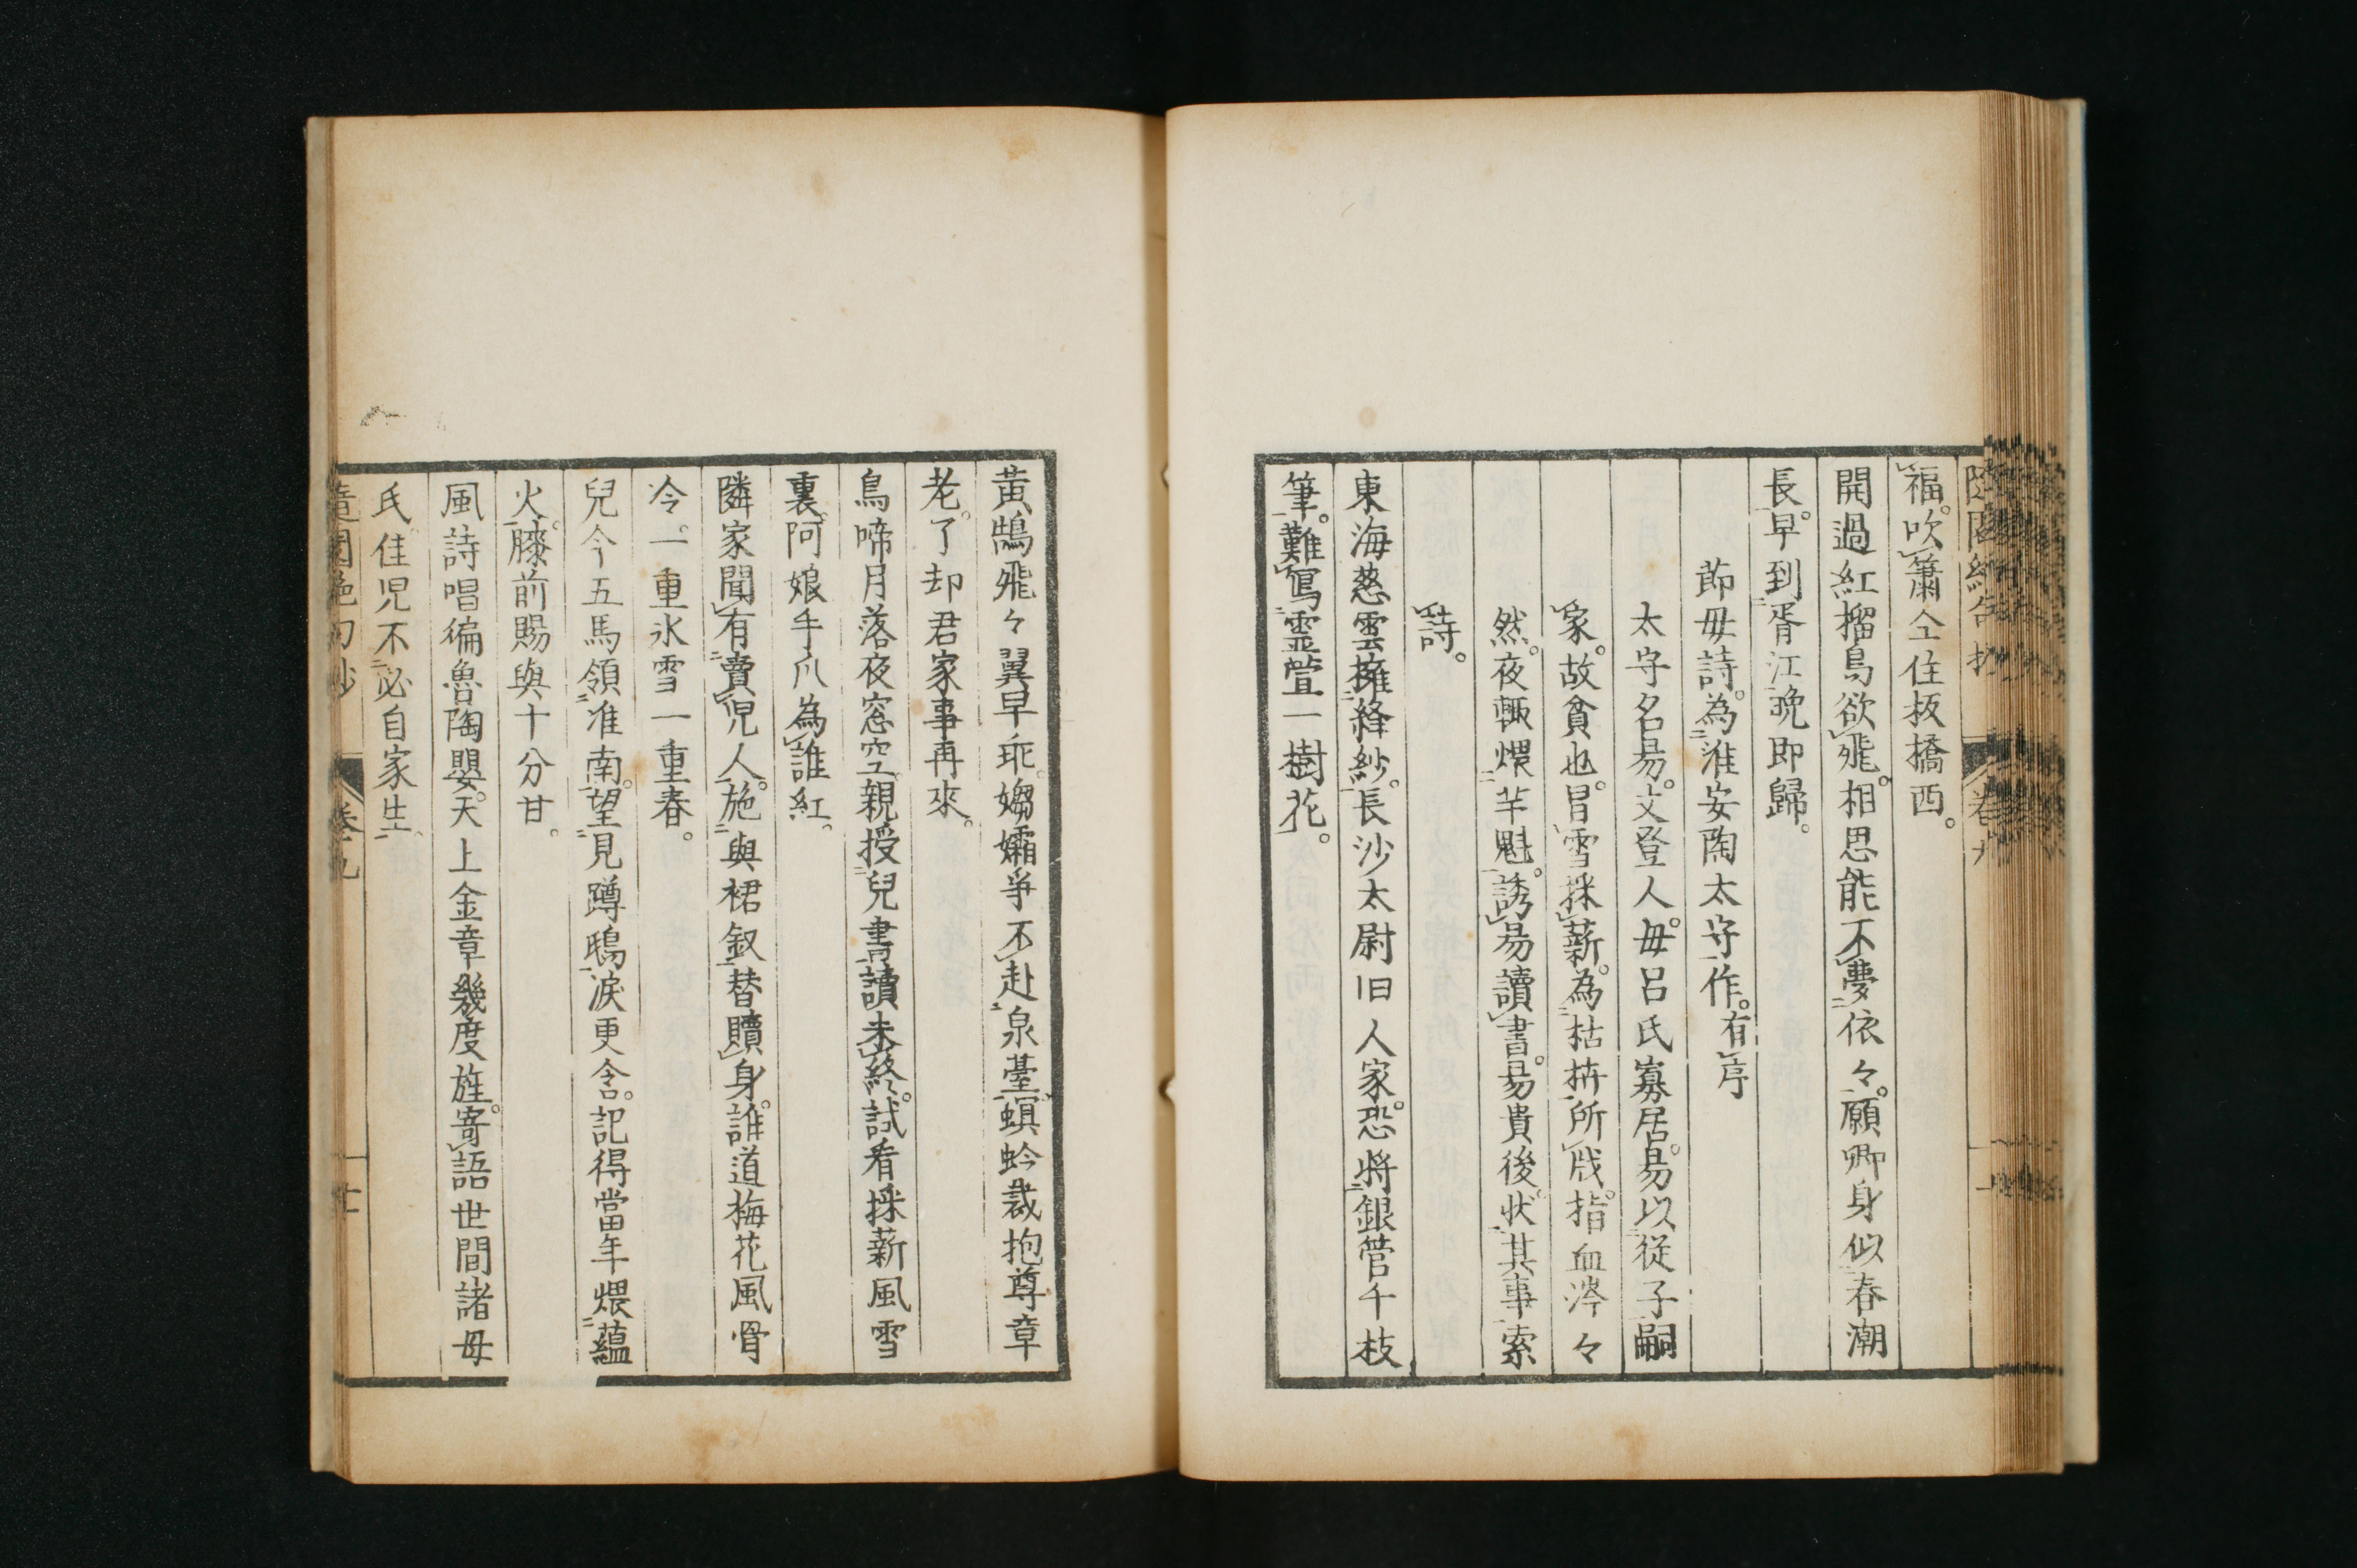 福。吹簫仝住板橋西。
開過紅榴鳥欲飛。相思能不夢依々。願卿身似春潮
長。早到胥江晩即歸。
節毋詩。為淮安陶太守作。有序
太守名易。文登人。毋呂氏寡居。易以從子嗣
家。故貧也。冒雪採薪。為枯枿所戕。指血涔々
然。夜輙煨芋魁。誘易讀書。易貴後。状其事索
詩。
東海慈雲擁絳紗。長沙太尉旧人家。恐將銀管千枝
筆。難寫靈萱一樹花。
黄鵠飛々翼早乖。媰孀爭不赴泉臺。螟蛉裁抱尊章
老。了却君家事再來。
鳥啼月落夜窓空。親授兒書讀未終。試看採薪風雪
裏。阿娘手爪為誰紅。
隣家聞有賣児人。施與裙釵替贖身。誰道梅花風骨
冷。一重氷雪一重春。
兒今五馬領淮南。望見蹲鴟淚更含。記得當年煨蘊
火。膝前賜與十分甘。
風詩唱徧魯陶嬰。天上金章幾度旌。寄語世間諸毋
氏。佳児不必自家生。
卷九